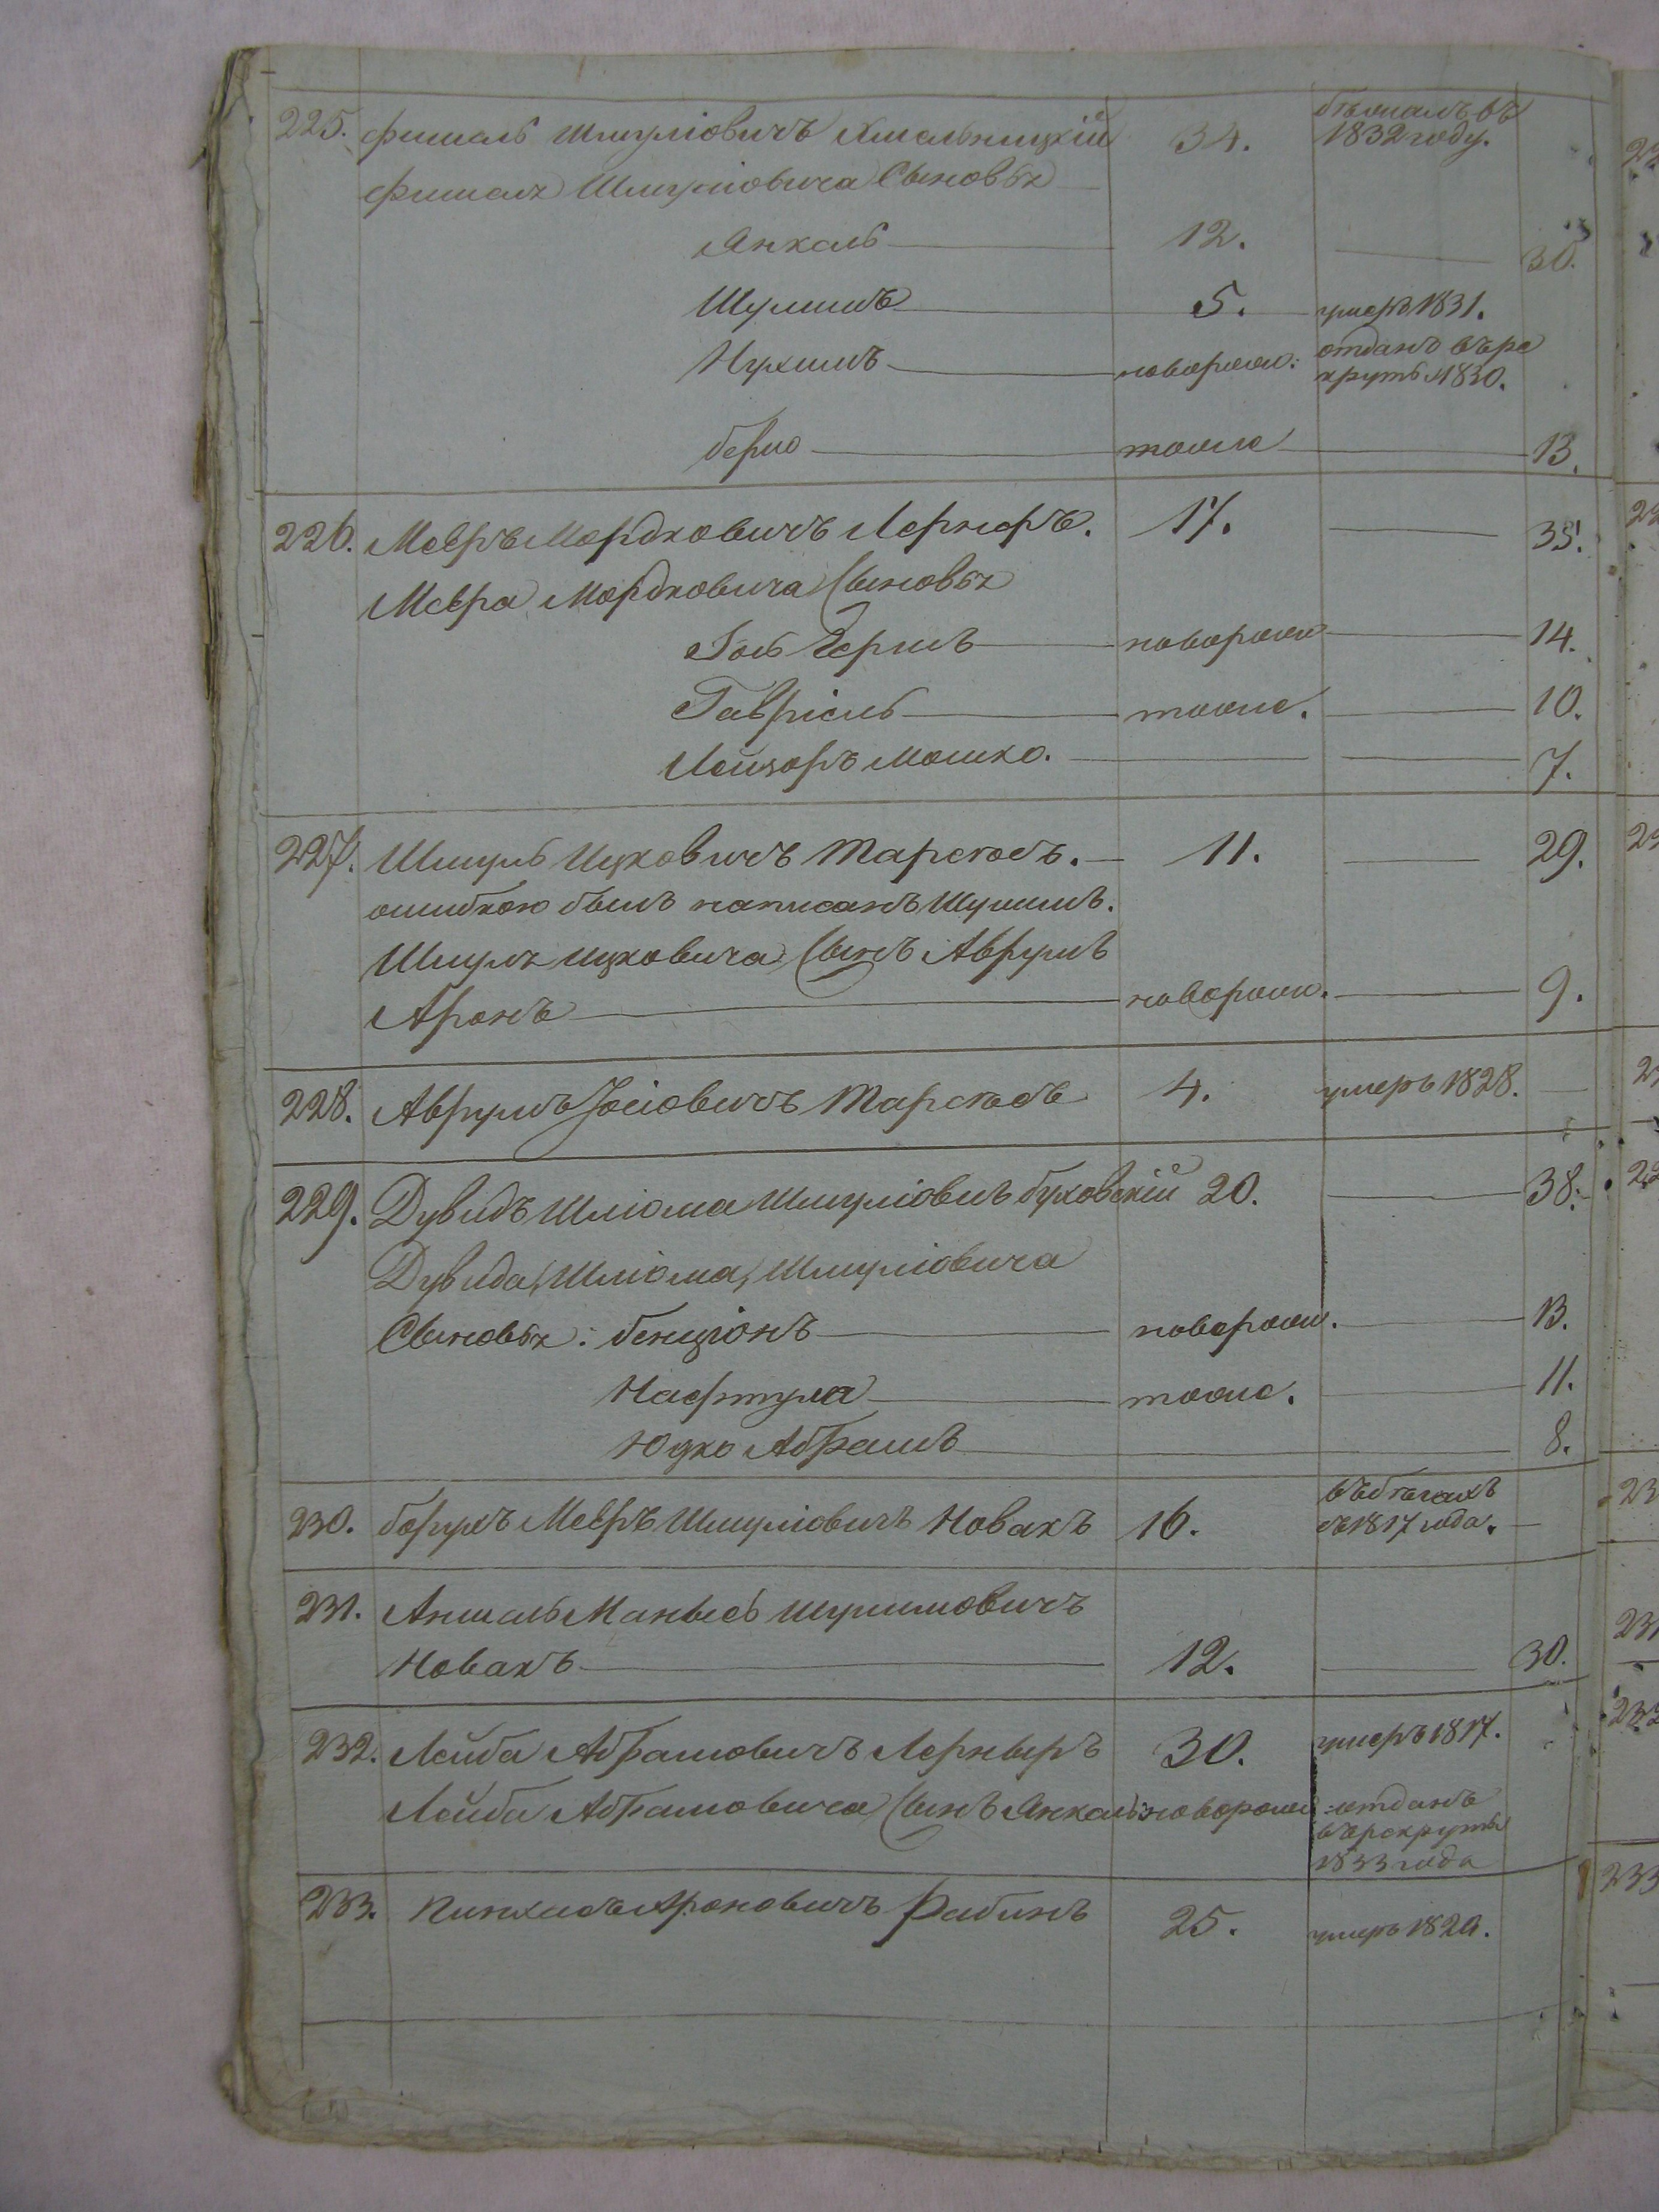 225. Фишель Шмуліовичъ Хмельницкій 34. бѣжалъ въ
1832 году.
Фишеля Шмуліовича Сыновья
Янкель 12. 30.
Шулимъ 5. умеръ 1831.
Нухимъ новорож: отданъ въ ре
круты 1830.
Берко тоже 13.
226. Мееръ Мордковичъ Лернеръ. 17. 35.
Меера Мордковича Сыновья
Гершъ новорож 14.
Гавріель тоже. 10.
Лейзоръ Мошко. 7.
227. Шмуль Ицковичъ 11. 29.
ошибкою былъ написанъ Шулимъ.
Шмуля Ицковича Сынъ Аврумъ
Аронъ новорож. 9.
228. Аврумъ Іосіовичъ 4. умеръ 1828.
229. Дувидъ Шліома Шмуліовичъ Буховскій 20. 38.
Дувида Шліома Шмуліовича
Сыновья: Бенціонъ новорож. 13.
Нафтула тоже. 11.
Юдко Абрамъ 8.
230. Борухъ Мееръ Шмуліовичъ Новакъ 16. въ бѣгахъ
съ 1817 года.
231. Аншель Манысъ Шулимовичъ
Новакъ 12. 30.
232. Лейба Абрамовичъ Лерныръ 30. умеръ 1817.
Лейба Абрамовича Сынъ Янкель новорож: отданъ
въ рекруты
1833 года
233. Пинхасъ Ароновичъ Рабинъ 25. умеръ 1820.